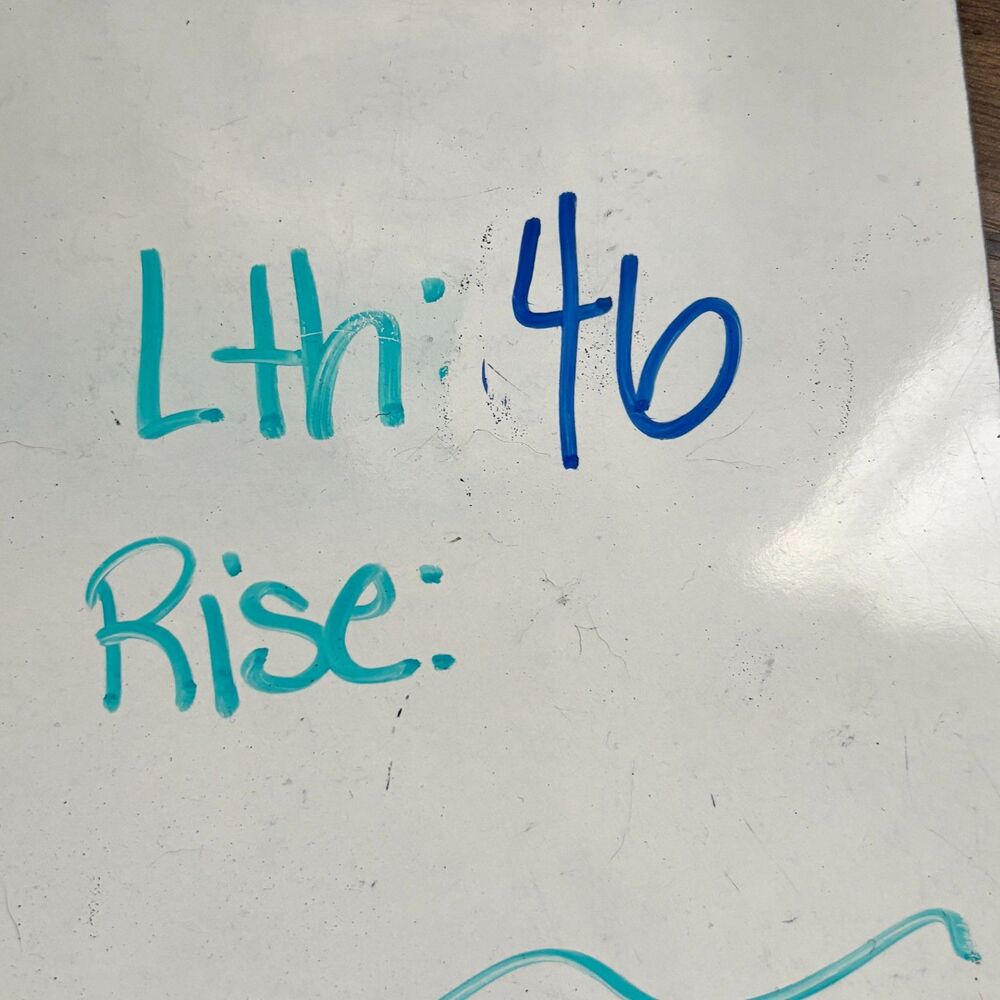 Lth: 46
Rise: